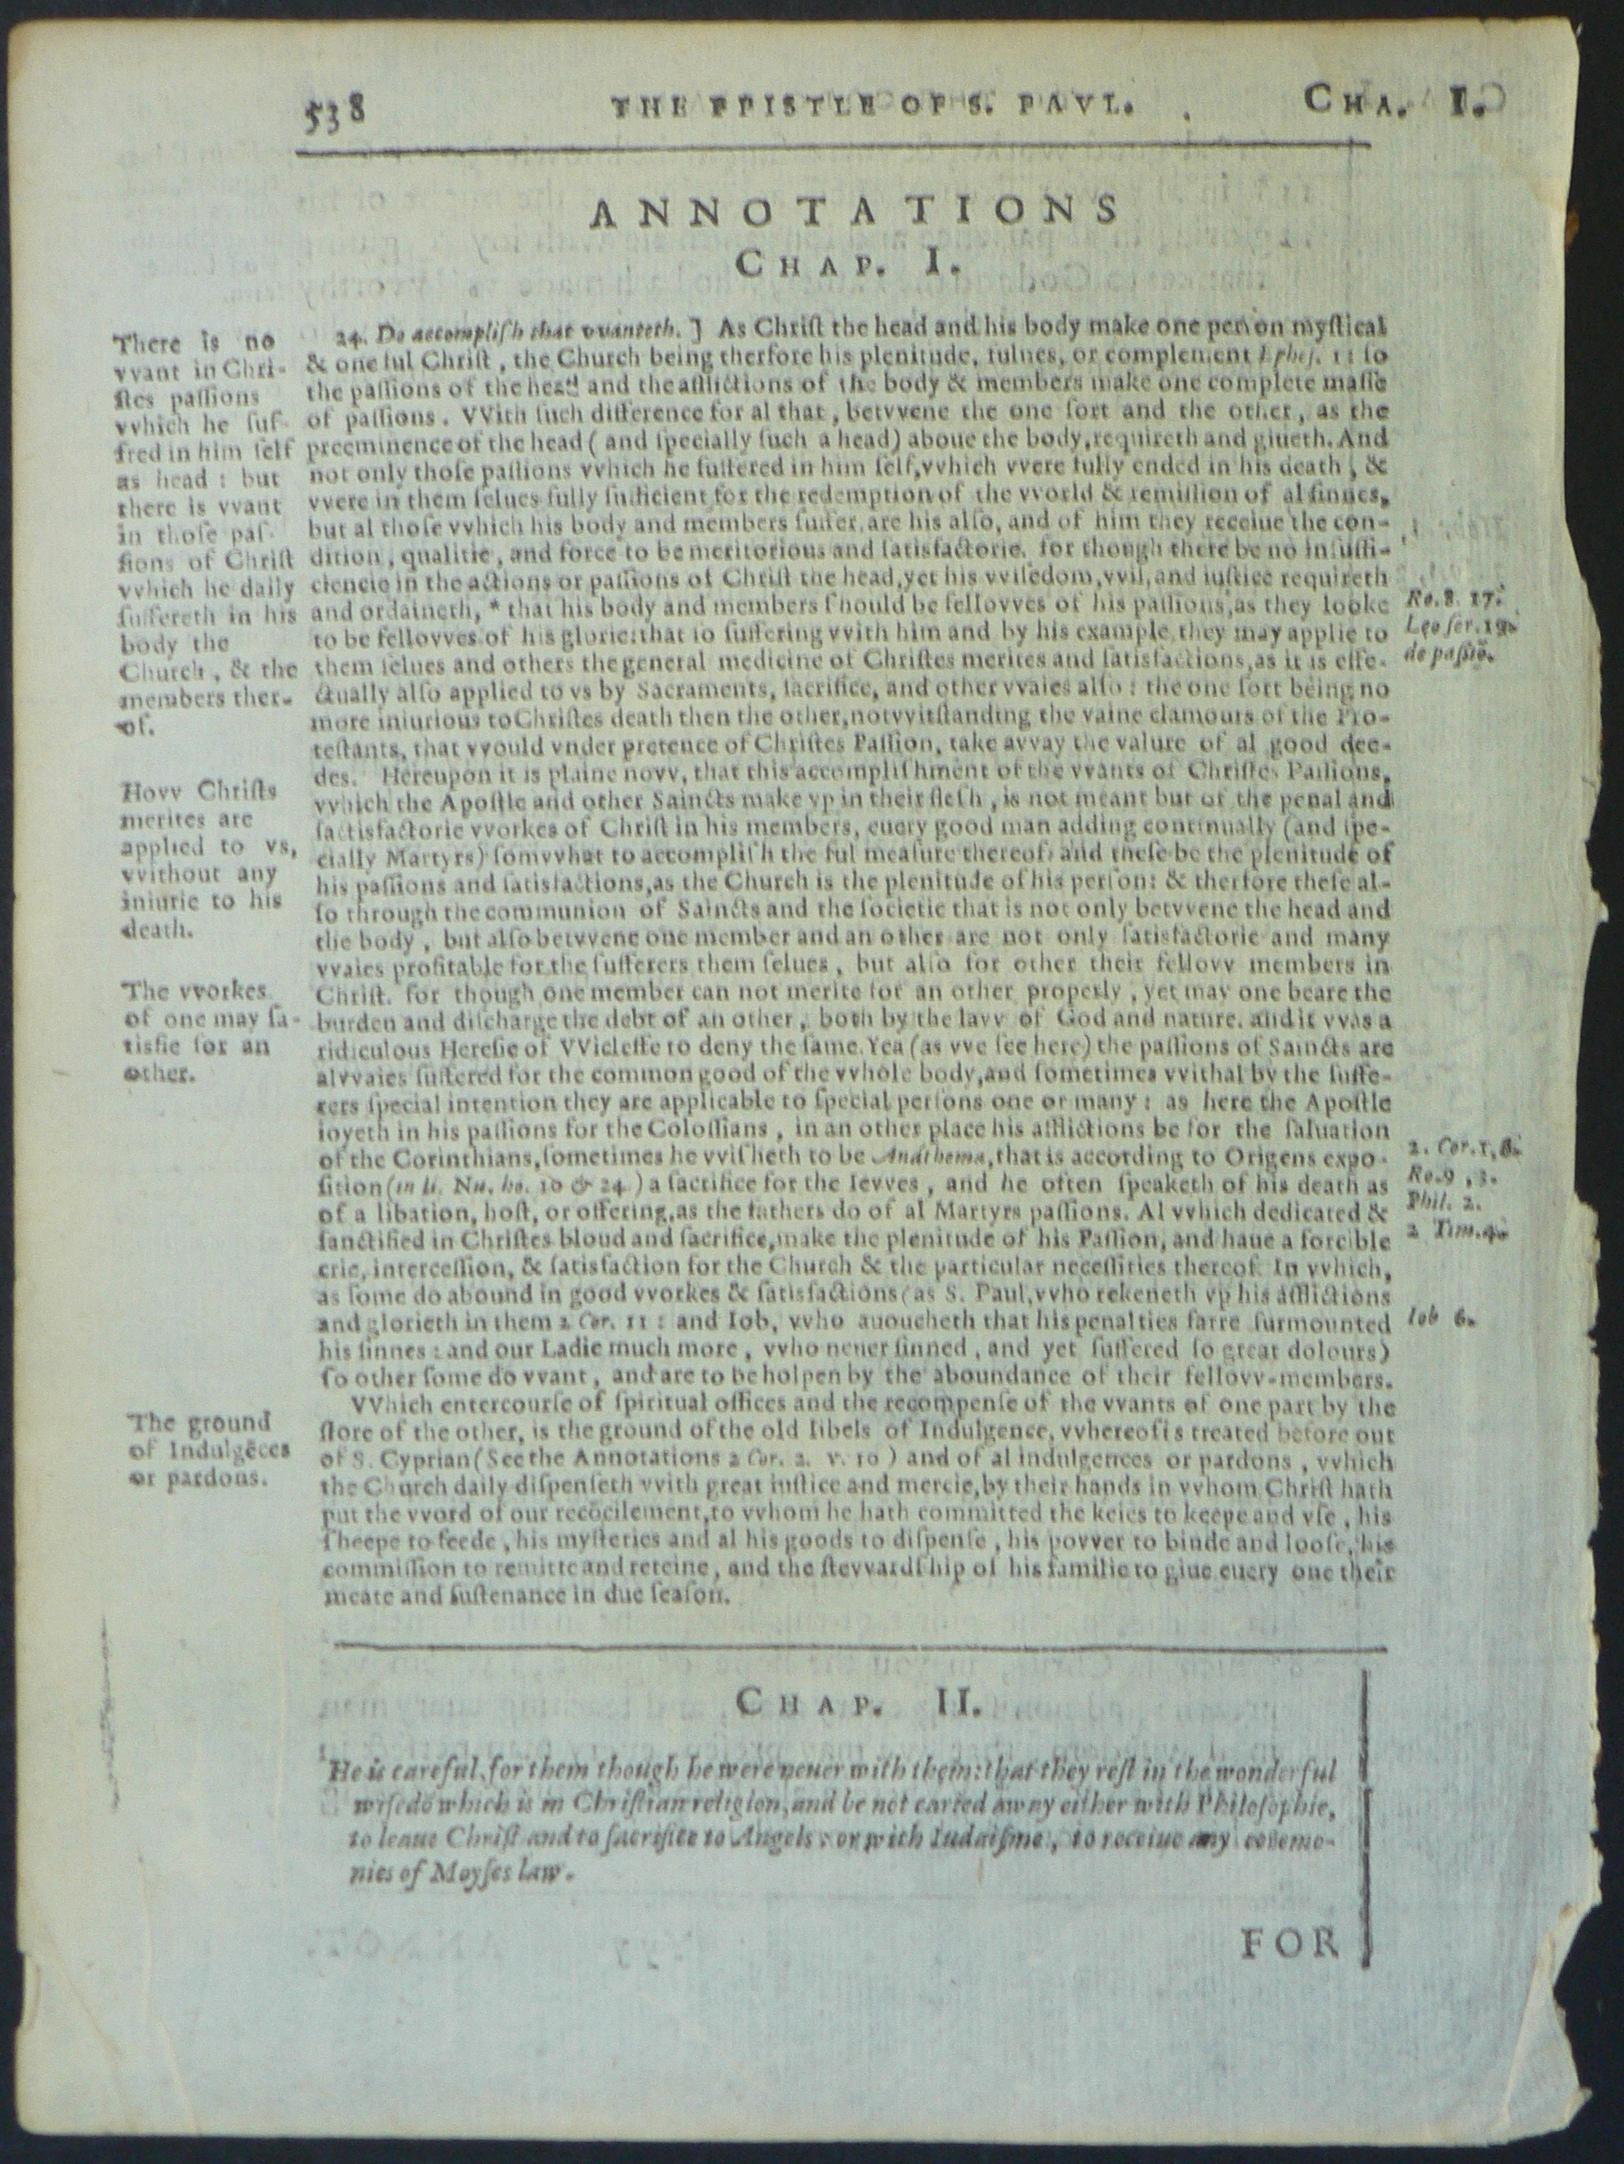 538 THE EPISTLE OF S. PAVL. CHA. I.
ANNOTATIONS
CHAP. I.
24. Do accompliſh that vvanteth. ] As Chriſt the head and his body make one perſon myſtical
& one ful Chriſt, the Church being therfore his plenitude, fulnes, or complement Epheſ. 1: ſo
the paſſions of the head and the afflictions of the body & members make one complete maſſe
of paſſions. VVith ſuch difference for al that, betvvene the one ſort and the other, as the
preeminence of the head (and ſpecially ſuch a head) aboue the body, requireth and giueth. And
not only thoſe paſſions vvhich he ſuffered in him ſelf, vvhich vvere fully ended in his death, &
vvere in them ſelues fully ſufficient for the redemption of the vvorld & remiſſion of al ſinnes,
but al thoſe vvhich his body and members ſuffer, are his alſo, and of him they receiue the con-
dition, qualitie, and force to be meritorious and ſatisfactorie. for though there be no inſuffi-
ciencie in the actions or paſſions of Chriſt the head, yet his vviſedom, vvil, and iuſtice requireth
and ordaineth, * that his body and members ſhould be fellovves of his paſſions, as they looke
to be fellovves of his glorie: that ſo ſuffering vvith him and by his example, they may applie to
them ſelues and others the general medicine of Chriſtes merites and ſatisfactions, as it is effe-
ctually alſo applied to vs by Sacraments, ſacrifice, and other vvaies alſo: the one ſort being no
more iniurious to Chriſtes death then the other, notvvitſtanding the vaine clamours of the Pro-
teſtants, that vvould vnder pretence of Chriſtes Paſſion, take avvay the valure of al good dee-
des. Hereupon it is plaine novv, that this accompliſhment of the vvants of Chriſtes Paſſions,
vvhich the Apoſtle and other Saincts make vp in their fleſh, is not meant but of the penal and
ſactisfactorie vvorkes of Chriſt in his members, euery good man adding continually (and ſpe-
cially Martyrs) ſomvvhat to accompliſh the ful meaſure thereof: and theſe be the plenitude of
his paſſions and ſatisfactions, as the Church is the plenitude of his perſon: & therfore theſe al-
ſo through the communion of Saincts and the ſocietie that is not only betvvene the head and
the body, but alſo betvvene one member and an other are not only ſatisfactorie and many
vvaies profitable for the ſufferers them ſelues, but alſo for other their fellovv members in
Chriſt. for though one member can not merite for an other properly, yet may one beare the
burden and diſcharge the debt of an other, both by the lavv of God and nature. and it vvas a
ridiculous Hereſie of VVicleffe to deny the ſame. Yea (as vve ſee here) the paſſions of Saincts are
alvvaies ſuffered for the common good of the vvhole body, and ſometimes vvithal by the ſuffe-
rers ſpecial intention they are applicable to ſpecial perſons one or many: as here the Apoſtle
ioyeth in his paſſions for the Coloſſians, in an other place his afflictions be for the ſaluation
of the Corinthians, ſometimes he vviſheth to be Anathema, that is according to Origens expo-
ſition (in li. Nu. ho. 10 & 24) a ſacrifice for the Ievves, and he often ſpeaketh of his death as
of a libation, hoſt, or offering, as the fathers do of al Martyrs paſſions. Al vvhich dedicated &
ſanctified in Chriſtes bloud and ſacrifice, make the plenitude of his Paſſion, and haue a forcible
crie, interceſſion, & ſatisfaction for the Church & the particular neceſſities thereof. In vvhich,
as ſome do abound in good vvorkes & ſatisfactions (as S. Paul, vvho rekeneth vp his afflictions
and glorieth in them 2 Cor. 11: and Iob, vvho auoucheth that his penalties farre ſurmounted
his ſinnes: and our Ladie much more, vvho neuer ſinned, and yet ſuffered ſo great dolours)
ſo other ſome do vvant, and are to be holpen by the aboundance of their fellovv-members.
VVhich entercourſe of ſpiritual offices and the recompenſe of the vvants of one part by the
ſtore of the other, is the ground of the old libels of Indulgence, vvhereof is treated before out
of S. Cyprian (See the Annotations 2 Cor. 2. v. 10) and of al indulgences or pardons, vvhich
the Church daily diſpenſeth vvith great iuſtice and mercie, by their hands in vvhom Chriſt hath
put the vvord of our recõcilement, to vvhom he hath committed the keies to keepe and vſe, his
ſheepe to feede, his myſteries and al his goods to diſpenſe, his povver to binde and looſe, his
commiſſion to remitte and reteine, and the ſtevvardſhip of his familie to giue euery one their
meate and ſuſtenance in due ſeaſon.
There is no
vvant in Chri-
ſtes paſſions
vvhich he ſuf-
fred in him ſelf
as head: but
there is vvant
in thoſe paſ-
ſions of Chriſt
vvhich he daily
ſuffereth in his
body the
Church, & the
members ther-
of.
Hovv Chriſts
merites are
applied to vs,
vvithout any
iniurie to his
death.
The vvorkes
of one may ſa-
tisfie for an
other.
The ground
of Indulgẽces
or pardons.
Ro. 8. 17.
Leo ſer. 19.
de paſsiõ.
2. Cor. 1, 6.
Ro. 9, 3.
Phil. 2.
2 Tim. 4.
Iob 6.
CHAP. II.
He is careful for them though he were neuer with them: that they reſt in the wonderful
wiſedõ which is in Chriſtian religion, and be not caried away either with Philoſophie,
to leaue Chriſt and to ſacrifice to Angels: or with Iudaiſme, to receiue any ceremo-
nies of Moyſes law.
FOR